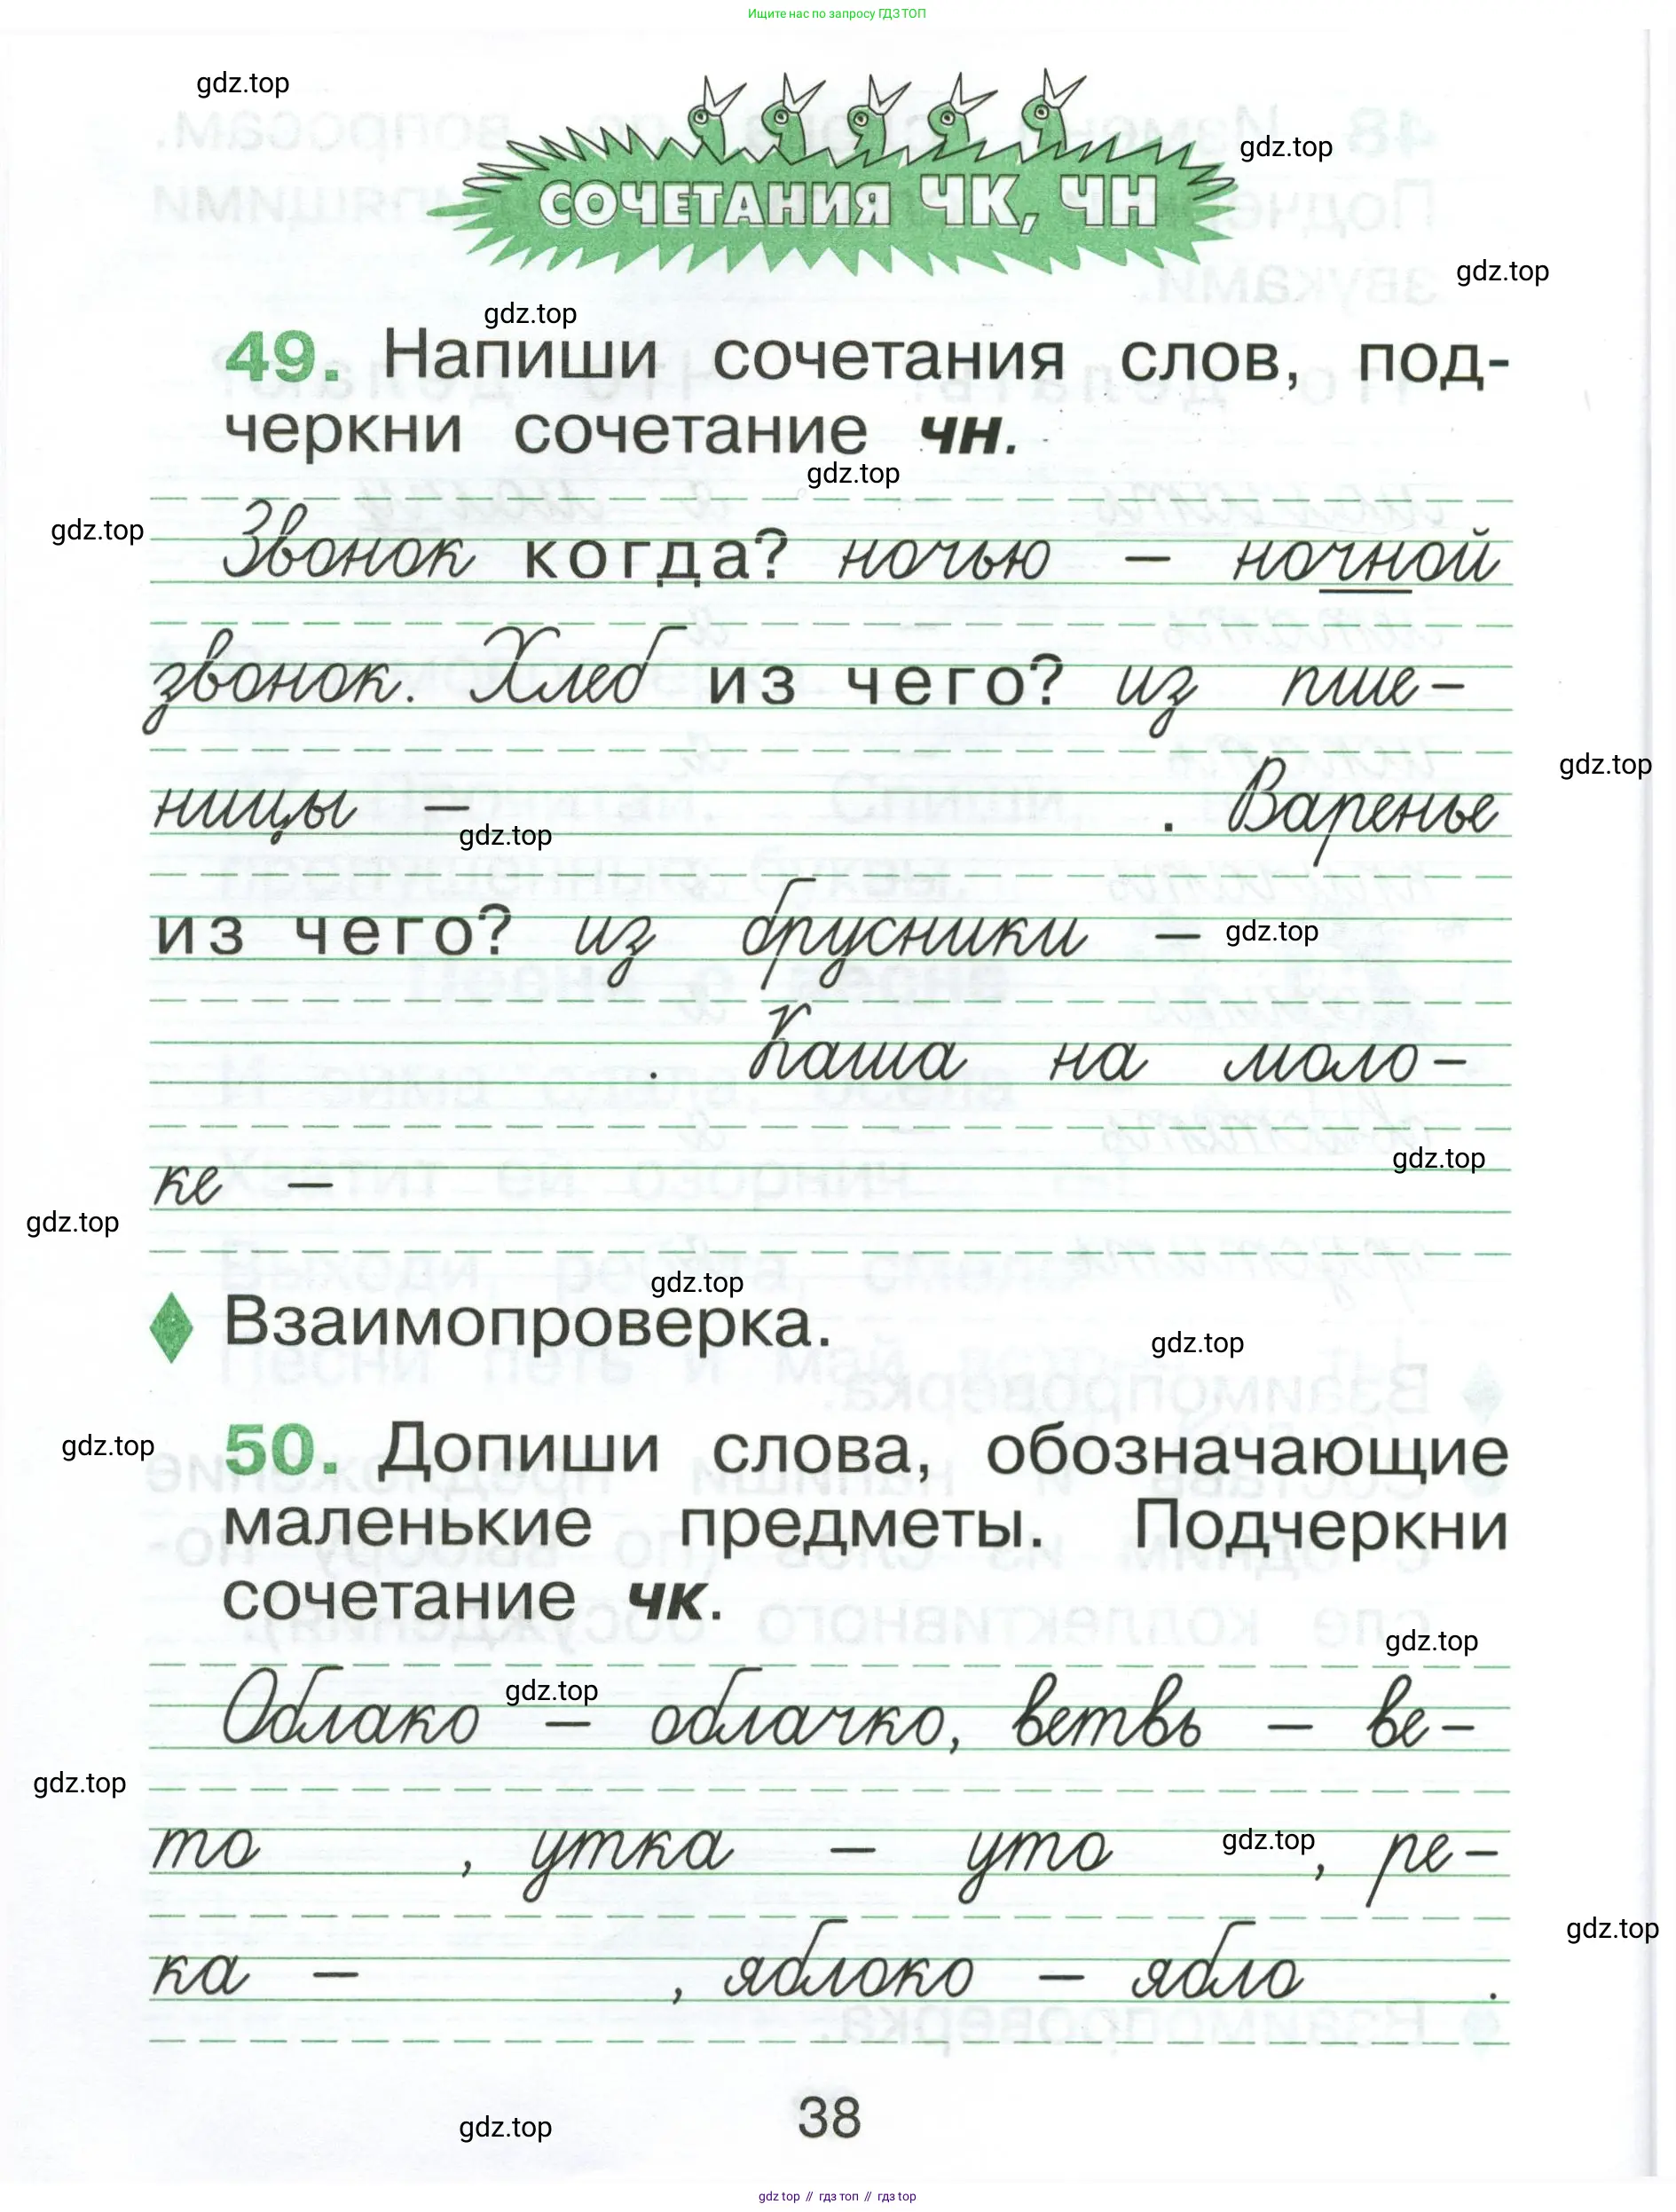 Ищите нас по запросу ГДЗ ТОП
gdz.top
СОЧЕТАНИЯ ЧК, ЧН
gdz.top
gdz.top
gdz.top
49. Напиши сочетания слов, под-
черкни сочетание чн.
gdz.top
gdz.top
Звонок когда? ночью – ночной
звонок. Хлеб из чего? из пше-
gdz.top
ницы – . Варенье
gdz.top
из чего? из брусники –
gdz.top
. Каша на моло-
gdz.top
ке –
gdz.top
gdz.top
Взаимопроверка.
gdz.top
gdz.top
50. Допиши слова, обозначающие
маленькие предметы. Подчеркни
сочетание чк.
gdz.top
gdz.top
Облако – облачко, ветвь – ве-
gdz.top
то , утка – уто , ре-
gdz.top
gdz.top
ка – , яблоко – ябло .
38
gdz.top
gdz top // гдз топ // гдз top